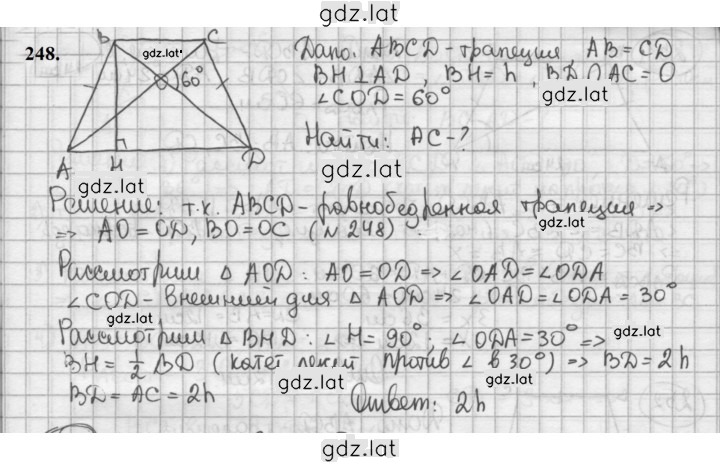 gdz.lat
248.
B C
gdz.lat
60°
A H D
gdz.lat
Дано: ABCD - трапеция, AB = CD
BH ⊥ AD, BH = h, BD ∩ AC = O
∠COD = 60°
gdz.lat
Найти: AC - ?
Решение: т.к. ABCD - равнобедренная трапеция =>
=> AO = OD, BO = OC (№248).
gdz.lat
Рассмотрим Δ AOD: AO = OD => ∠OAD = ∠ODA
∠COD - внешний для Δ AOD => ∠OAD = ∠ODA = 30°
gdz.lat
Рассмотрим Δ BHD: ∠H = 90°, ∠ODA = 30° =>
gdz.lat
BH = 1/2 BD (катет лежит против ∠ в 30°) => BD = 2h
gdz.lat
gdz.lat
BD = AC = 2h
Ответ: 2h
gdz.lat